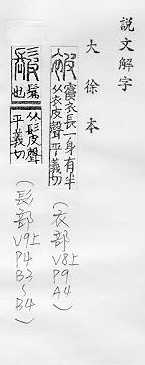 說文解字
大徐本
被 寢衣長一身有半
从衣皮聲平義切
(衣部V8上P9A4)
髲 鬄也
从髟皮聲平義切
(髟部V9上P4B3~B4)